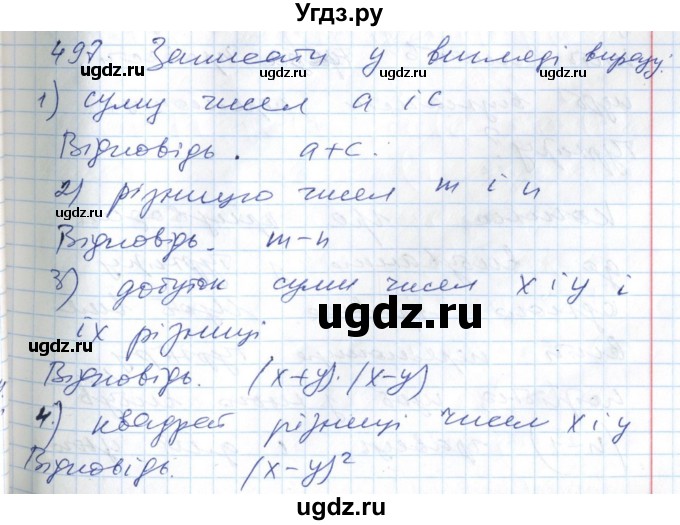 Угдз.ру
497. Записати у вигляді виразу.
ugdz.ru ugdz.ru
1) суму чисел a і c
Відповідь. a+c.
2) різницю чисел m і n
ugdz.ru
Відповідь. m-n
3) добуток суми чисел x і y і
ugdz.ru
їх різниці
ugdz.ru
Відповідь. (x+y)·(x-y)
4) квадрат різниці чисел x і y
Відповідь. (x-y)²
ugdz.ru ugdz.ru